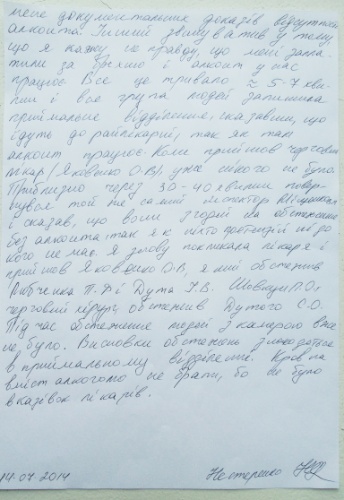 мене документальних доказів відсутності
алкоюта. Інший звинуватив у тому,
що я кажу не правду, що мені запла-
тили за брехню і алкоют у нас
працює. Все це тривало ≈ 5-7 хви-
лин і вся група людей залишила
приймальне відділення, сказавши, що
їдуть до райлікарні, так як там
алкоют працює. Коли прийшов черговий
лікар (Яковенко О.В), уже нікого не було.
Приблизно через 30-40 хвилин повер-
нувся той же самий
і сказав, що вони згодні на обстеження
без алкоюта, так як ніхто
кого не має. Я знову покликала лікаря і
прийшов Яковенко О.В, який обстежив
Рябченка П. Д і Дута І.В.
черговий хірург, обстежив Дутого С.О.
Під час обстеження людей з камерою вже
не було. Висновки обстежень знаходяться
в приймальному відділенні. Кров на
вміст алкоголю не брали, бо не було
вказівок лікарів.
14.07.2014 Нестеренко